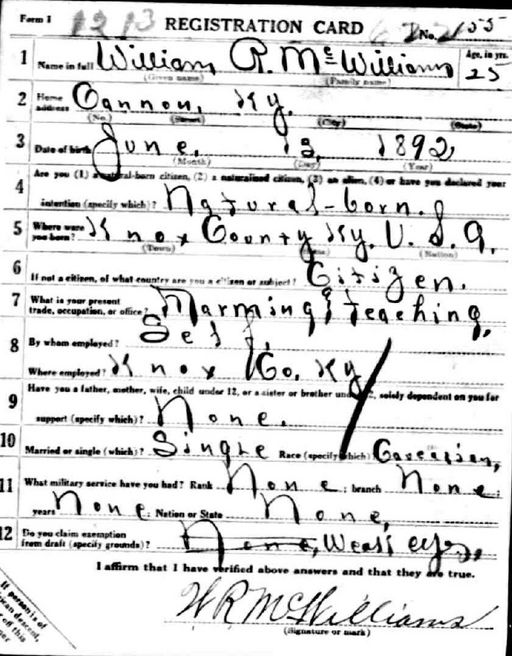 Form 1 1213 REGISTRATION CARD No. 55
1 Name in full William R. McWilliams Age, in yrs. 25
(Given name) (Family name)
2 Home address Cannon, Ky.
(No.) (Street) (City) (State)
3 Date of birth June, 13, 1892
(Month) (Day) (Year)
Are you (1) a natural-born citizen, (2) a naturalized citizen, (3) an alien, (4) or have you declared your
4 intention (specify which)? Natural-born.
5 Where were you born? Knox County Ky. U.S.A.
(Town) (Nation)
6 If not a citizen, of what country are you a citizen or subject? Citizen.
7 What is your present trade, occupation, or office? Farming & teaching.
8 By whom employed? Self,
Where employed? Knox Co. Ky
9 Have you a father, mother, wife, child under 12, or a sister or brother under 12, solely dependent on you for
support (specify which)? None.
10 Married or single (which)? Single Race (specify which) Caucasian,
11 What military service have you had? Rank None; branch None;
years None; Nation or State None,
12 Do you claim exemption from draft (specify grounds)? None, Weak eyes.
I affirm that I have verified above answers and that they are true.
W R McWilliams
(Signature or mark)
If person is of